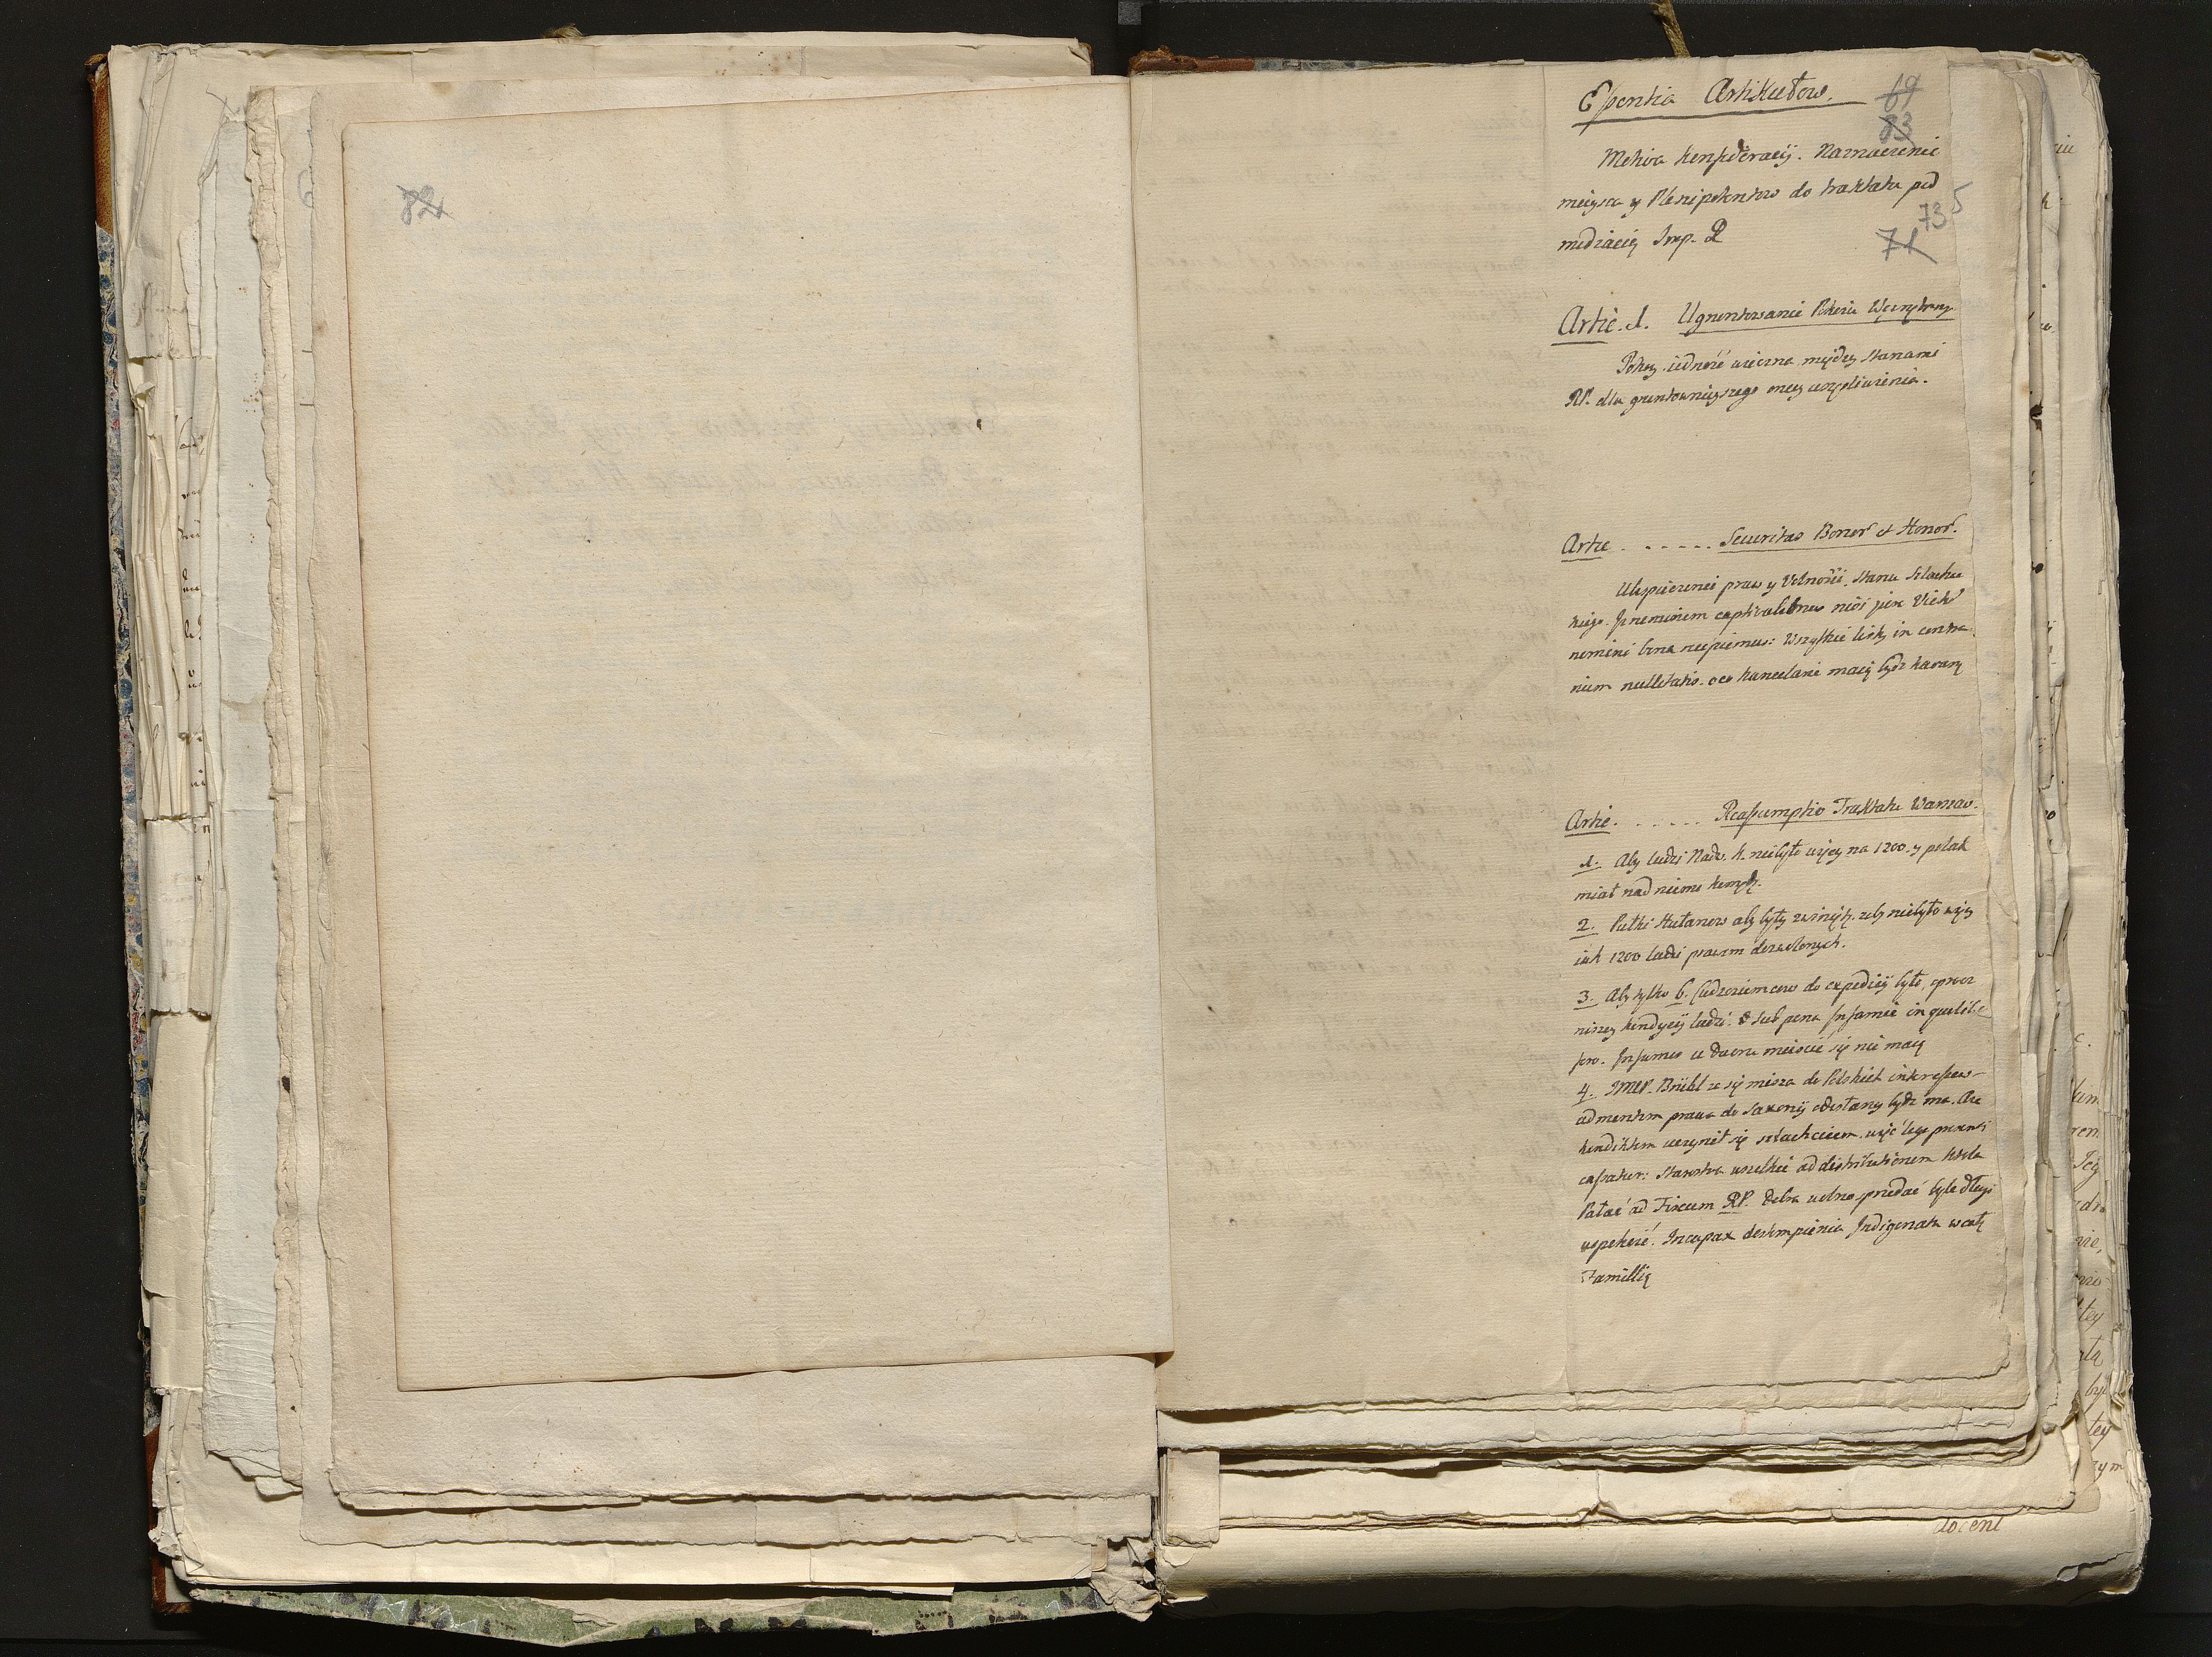 82
Essentia Artikułow. 69
83
Motiva Konfederacij. Naznaczenie
mieysca y Plenipotentow do traktatu pod 5
73
mediacią Imp. R
71
Artic. 1. Ugruntowanie Pokoiu Wewnętrzn.
Pokoy iedność wieczna między Stanami
RP. dla gruntownieyszego oney
Artic. . . . . . Securitas Bonor et Honor.
Ubespieczenie praw y Wolności Stanu Szlachec
kiego. Jż neminem captivabimus nisi jure Vict
nemini bona recipiemus: Wszystkie listy in contra
rium nullitatis. oco Kancelarie maią bydz karany
Artic. . . . . . Reassumptio Traktatu Warsaw.
1. Aby ludzi Nadw. K. niebyło więcy na 1200. y polak
miał nad niemi komędę.
2. Pułki Hułanow aby były zwinięte. zeby niebyło więcy
iak 1200 ludzi prawem dozwolonych.
3. Aby tylko 6. Cudzoziemcow do expedicij było, oprocz
niszey kondycij ludzi. Sub pena Infamie in quolibet
foro. Infames u Dworu mieścić się nie maią
4. JMCP. Brühl ze się miesza do Polskich interessow
ad mentem prawa do Saxonij odesłany bydz ma. Ale
kondiktem uczynił się szlachcicem. więc tego prawa
capatur: Starostwa wszelkie ad distributionem Krola
Pałac ad Fiscum RP. Dobra wolno przedać byle długi
uspokoić. Incapax dostompienia Indigenatu w całą
Familią
docent